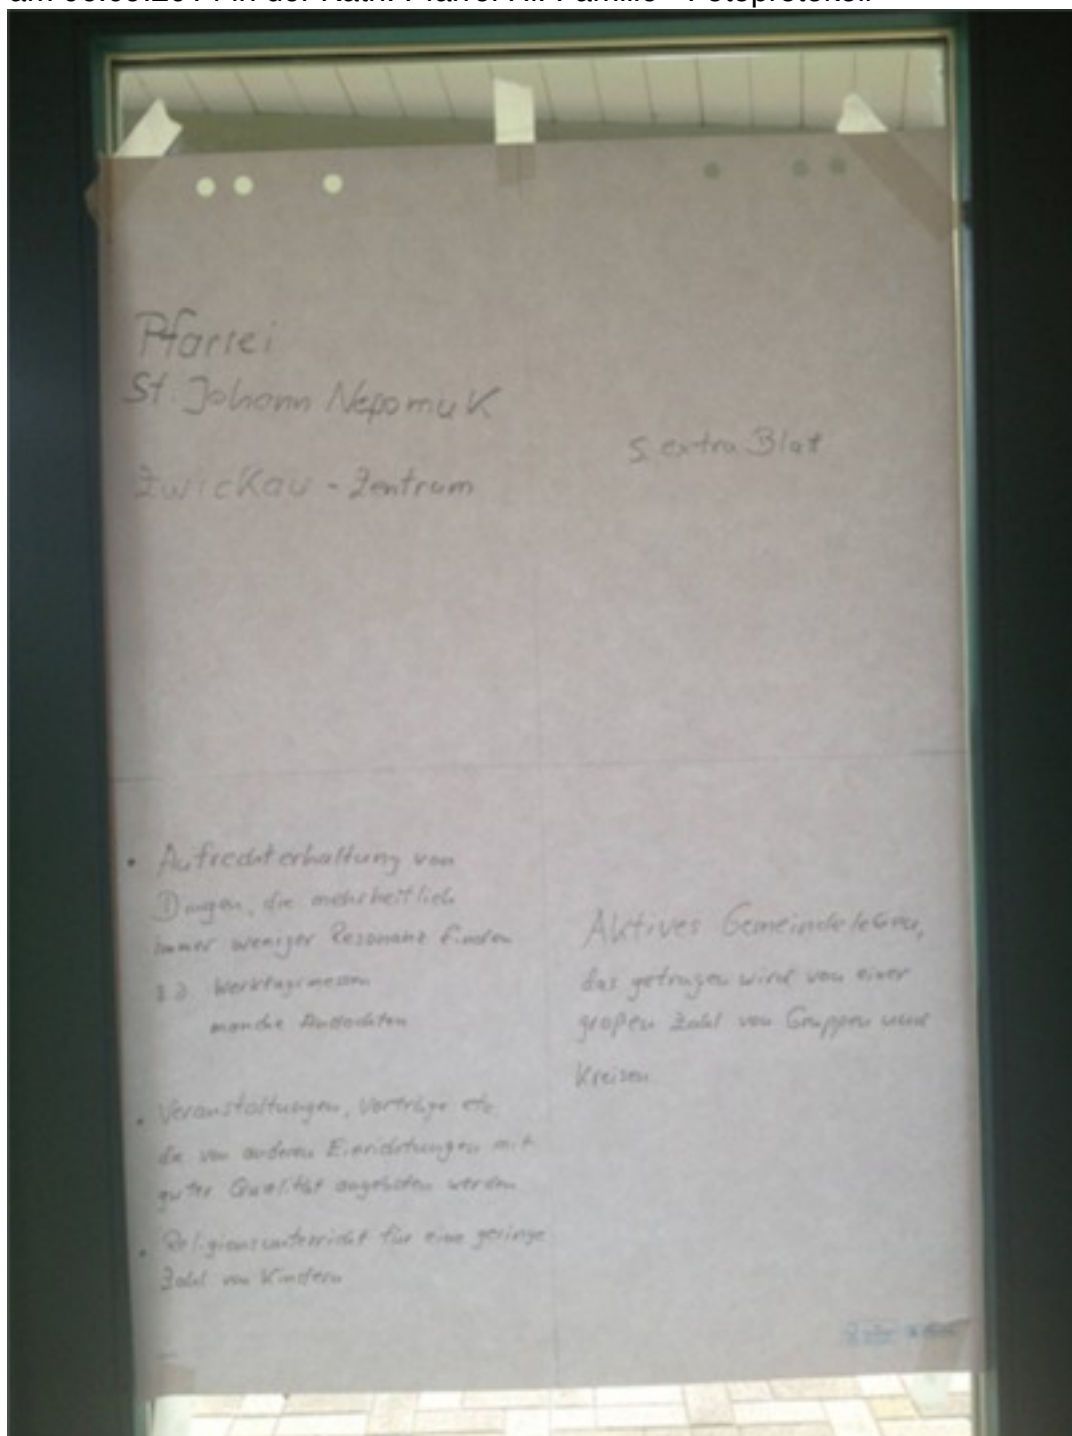 Pfarrei
St. Johann Nepomuk
Zwickau - Zentrum
s. extra Blat
• Aufrechterhaltung von
Dingen, die mehrheitlich
immer weniger Resonanz finden
z.B. Werktagsmessen
manche Andachten
• Veranstaltungen, Vorträge etc.
die von anderen Einrichtungen mit
guter Qualität angeboten werden
• Religionsunterricht für eine geringe
Zahl von Kindern
Aktives Gemeindeleben,
das getragen wird von einer
großen Zahl von Gruppen und
Kreisen